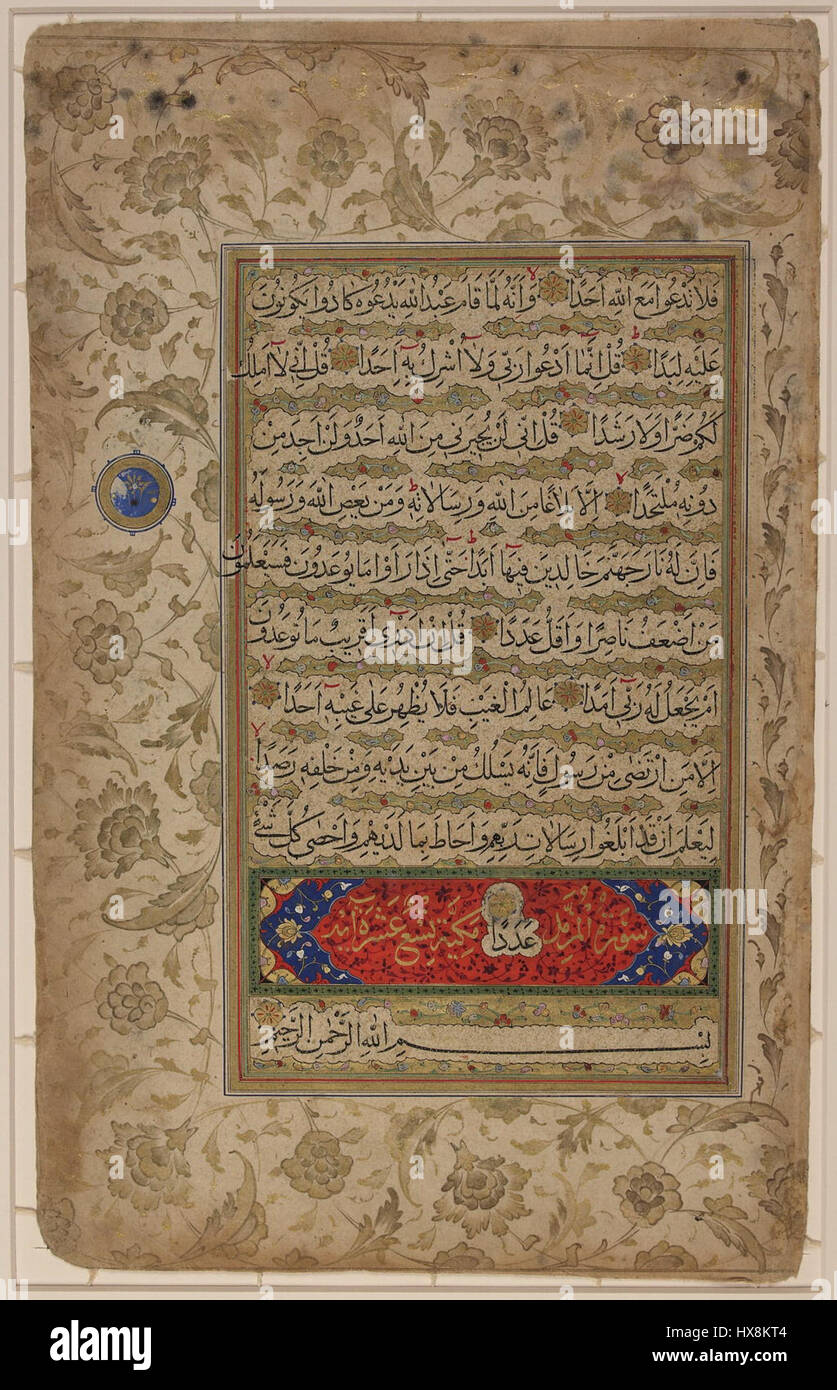 فَلَا تَدْعُوا مَعَ اللَّهِ أَحَدًا وَأَنَّهُ لَمَّا قَامَ عَبْدُ اللَّهِ يَدْعُوهُ كَادُوا يَكُونُونَ
عَلَيْهِ لِبَدًا قُلْ إِنَّمَا أَدْعُوا رَبِّي وَلَا أُشْرِكُ بِهِ أَحَدًا قُلْ إِنِّي لَا أَمْلِكُ
لَكُمْ ضَرًّا وَلَا رَشَدًا قُلْ إِنِّي لَنْ يُجِيرَنِي مِنَ اللَّهِ أَحَدٌ وَلَنْ أَجِدَ مِنْ
دُونِهِ مُلْتَحَدًا إِلَّا بَلَاغًا مِنَ اللَّهِ وَرِسَالَاتِهِ وَمَنْ يَعْصِ اللَّهَ وَرَسُولَهُ
فَإِنَّ لَهُ نَارَ جَهَنَّمَ خَالِدِينَ فِيهَا أَبَدًا حَتَّى إِذَا رَأَوْا مَا يُوعَدُونَ فَسَيَعْلَمُونَ
مَنْ أَضْعَفُ نَاصِرًا وَأَقَلُّ عَدَدًا قُلْ إِنْ أَدْرِي أَقَرِيبٌ مَا تُوعَدُونَ
أَمْ يَجْعَلُ لَهُ رَبِّي أَمَدًا عَالِمُ الْغَيْبِ فَلَا يُظْهِرُ عَلَى غَيْبِهِ أَحَدًا
إِلَّا مَنِ ارْتَضَى مِنْ رَسُولٍ فَإِنَّهُ يَسْلُكُ مِنْ بَيْنِ يَدَيْهِ وَمِنْ خَلْفِهِ رَصَدًا
لِيَعْلَمَ أَنْ قَدْ أَبْلَغُوا رِسَالَاتِ رَبِّهِمْ وَأَحَاطَ بِمَا لَدَيْهِمْ وَأَحْصَى كُلَّ شَيْءٍ
سورة المزمل عَدَدًا مكية تسع عشرة آية
بِسْمِ اللَّهِ الرَّحْمَنِ الرَّحِيمِ
alamy
Image ID: HX8KT4
www.alamy.com